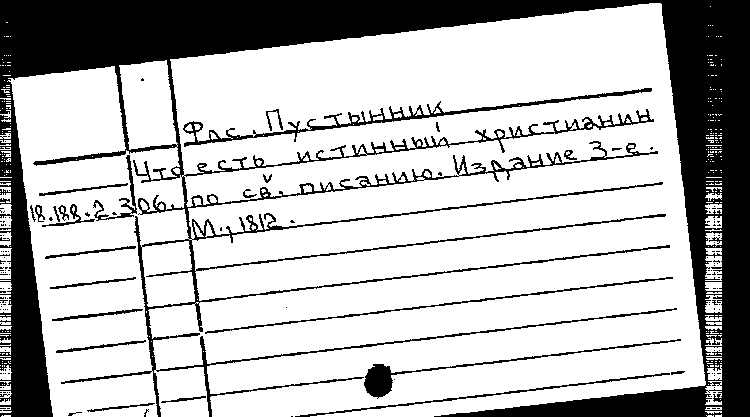 Флс. Пустынник
Что есть истинный христианин
18.188.2.306. по св. писанию. Издание 3-е.
М., 1812.